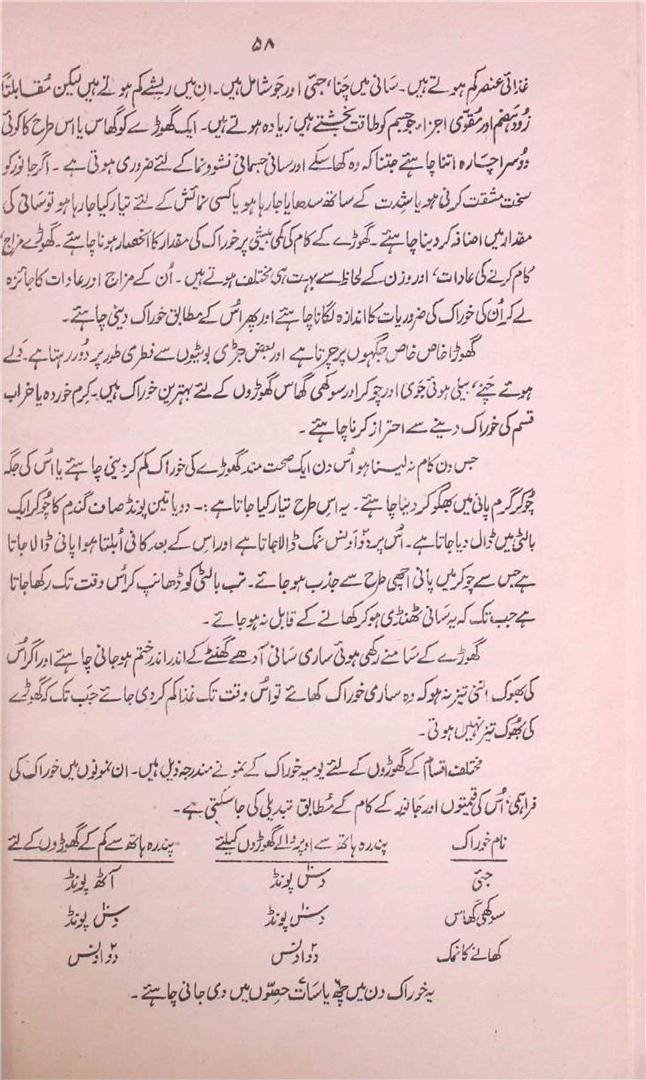 ۵۸
غذائی عنصر کم ہوتے ہیں۔ سانی میں چنا، جئی اور جَو شامل ہیں۔ اِن میں ریشے کم ہوتے ہیں لیکن مقابلتاً
زُود ہضم اور مُقوّی اجزاء جو جسم کو طاقت بخشتے ہیں زیادہ ہوتے ہیں۔ ایک گھوڑے کو گھاس یا اس طرح کا کوئی
دوسرا چارہ اتنا چاہئے جتنا کہ وہ کھا سکے اور سانی جسمانی نشوونما کے لئے ضروری ہوتی ہے۔ اگر جانور کو
سخت مشقت کرنی ہو یا شدت کے ساتھ سدھایا جا رہا ہو یا کسی نمائش کے لئے تیار کیا جا رہا ہو تو سانی کی
مقدار میں اضافہ کر دینا چاہئے۔ گھوڑے کے کام کی کمی بیشی پر خوراک کی مقدار کا انحصار ہونا چاہئے۔ گھوڑے مزاج،
کام کرنے کی عادات، اور وزن کے لحاظ سے بہت ہی مختلف ہوتے ہیں۔ اُن کے مزاج اور عادات کا جائزہ
لے کر اُن کی خوراک کی ضروریات کا اندازہ لگانا چاہئے اور پھر اُس کے مطابق خوراک دینی چاہئے۔
گھوڑا خاص خاص جگہوں پر چرتا ہے اور بعض جڑی بوٹیوں سے فطری طور پر دُور رہتا ہے۔ دَلے
ہوئے چنے، بیلی ہوئی جوی اور چوکر اور سوکھی گھاس گھوڑوں کے لئے بہترین خوراک ہیں۔ کِرم خوردہ یا خراب
قسم کی خوراک دینے سے احتراز کرنا چاہئے۔
جس دن کام نہ لینا ہو اُس دن ایک صحت مند گھوڑے کی خوراک کم کر دینی چاہئے یا اُس کی جگہ
چوکر گرم پانی میں بھگو کر دینا چاہئے۔ یہ اِس طرح تیار کیا جاتا ہے:- دو یا تین پونڈ صاف گندم کا چوکر ایک
بالٹی میں ڈال دیا جاتا ہے۔ اُس پر دو اَونس نمک ڈالا جاتا ہے اور اس کے بعد کافی اُبلتا ہوا پانی ڈالا جاتا
ہے جس سے چوکر میں پانی اچھی طرح سے جذب ہو جائے۔ تب بالٹی کو ڈھانپ کر اُس وقت تک رکھا جاتا
ہے جب تک کہ یہ سانی ٹھنڈی ہو کر کھانے کے قابل نہ ہو جائے۔
گھوڑے کے سامنے رکھی ہوئی ساری سانی آدھے گھنٹے کے اندر اندر ختم ہو جانی چاہئے اور اگر اُس
کی بھوک اتنی تیز نہ ہو کہ وہ ساری خوراک کھائے تو اُس وقت تک غذا کم کر دی جائے جب تک کہ گھوڑے
کی بھُوک تیز نہیں ہوتی۔
مختلف اقسام کے گھوڑوں کے لئے یومیہ خوراک کے نمونے مندرجہ ذیل ہیں۔ ان نمونوں میں خوراک کی
فراہمی، اُس کی قیمتوں اور جانور کے کام کے مُطابق تبدیلی کی جا سکتی ہے۔
نام خوراک پندرہ ہاتھ سے اوپر والے گھوڑوں کیلئے پندرہ ہاتھ سے کم کے گھوڑوں کے لئے
جئی دس۱۰ پونڈ آٹھ پونڈ
سوکھی گھاس دس۱۰ پونڈ دس۱۰ پونڈ
کھانے کا نمک دو۲ اونس دو۲ اونس
یہ خوراک دن میں چھ۶ یا سات۷ حصّوں میں دی جانی چاہئے۔